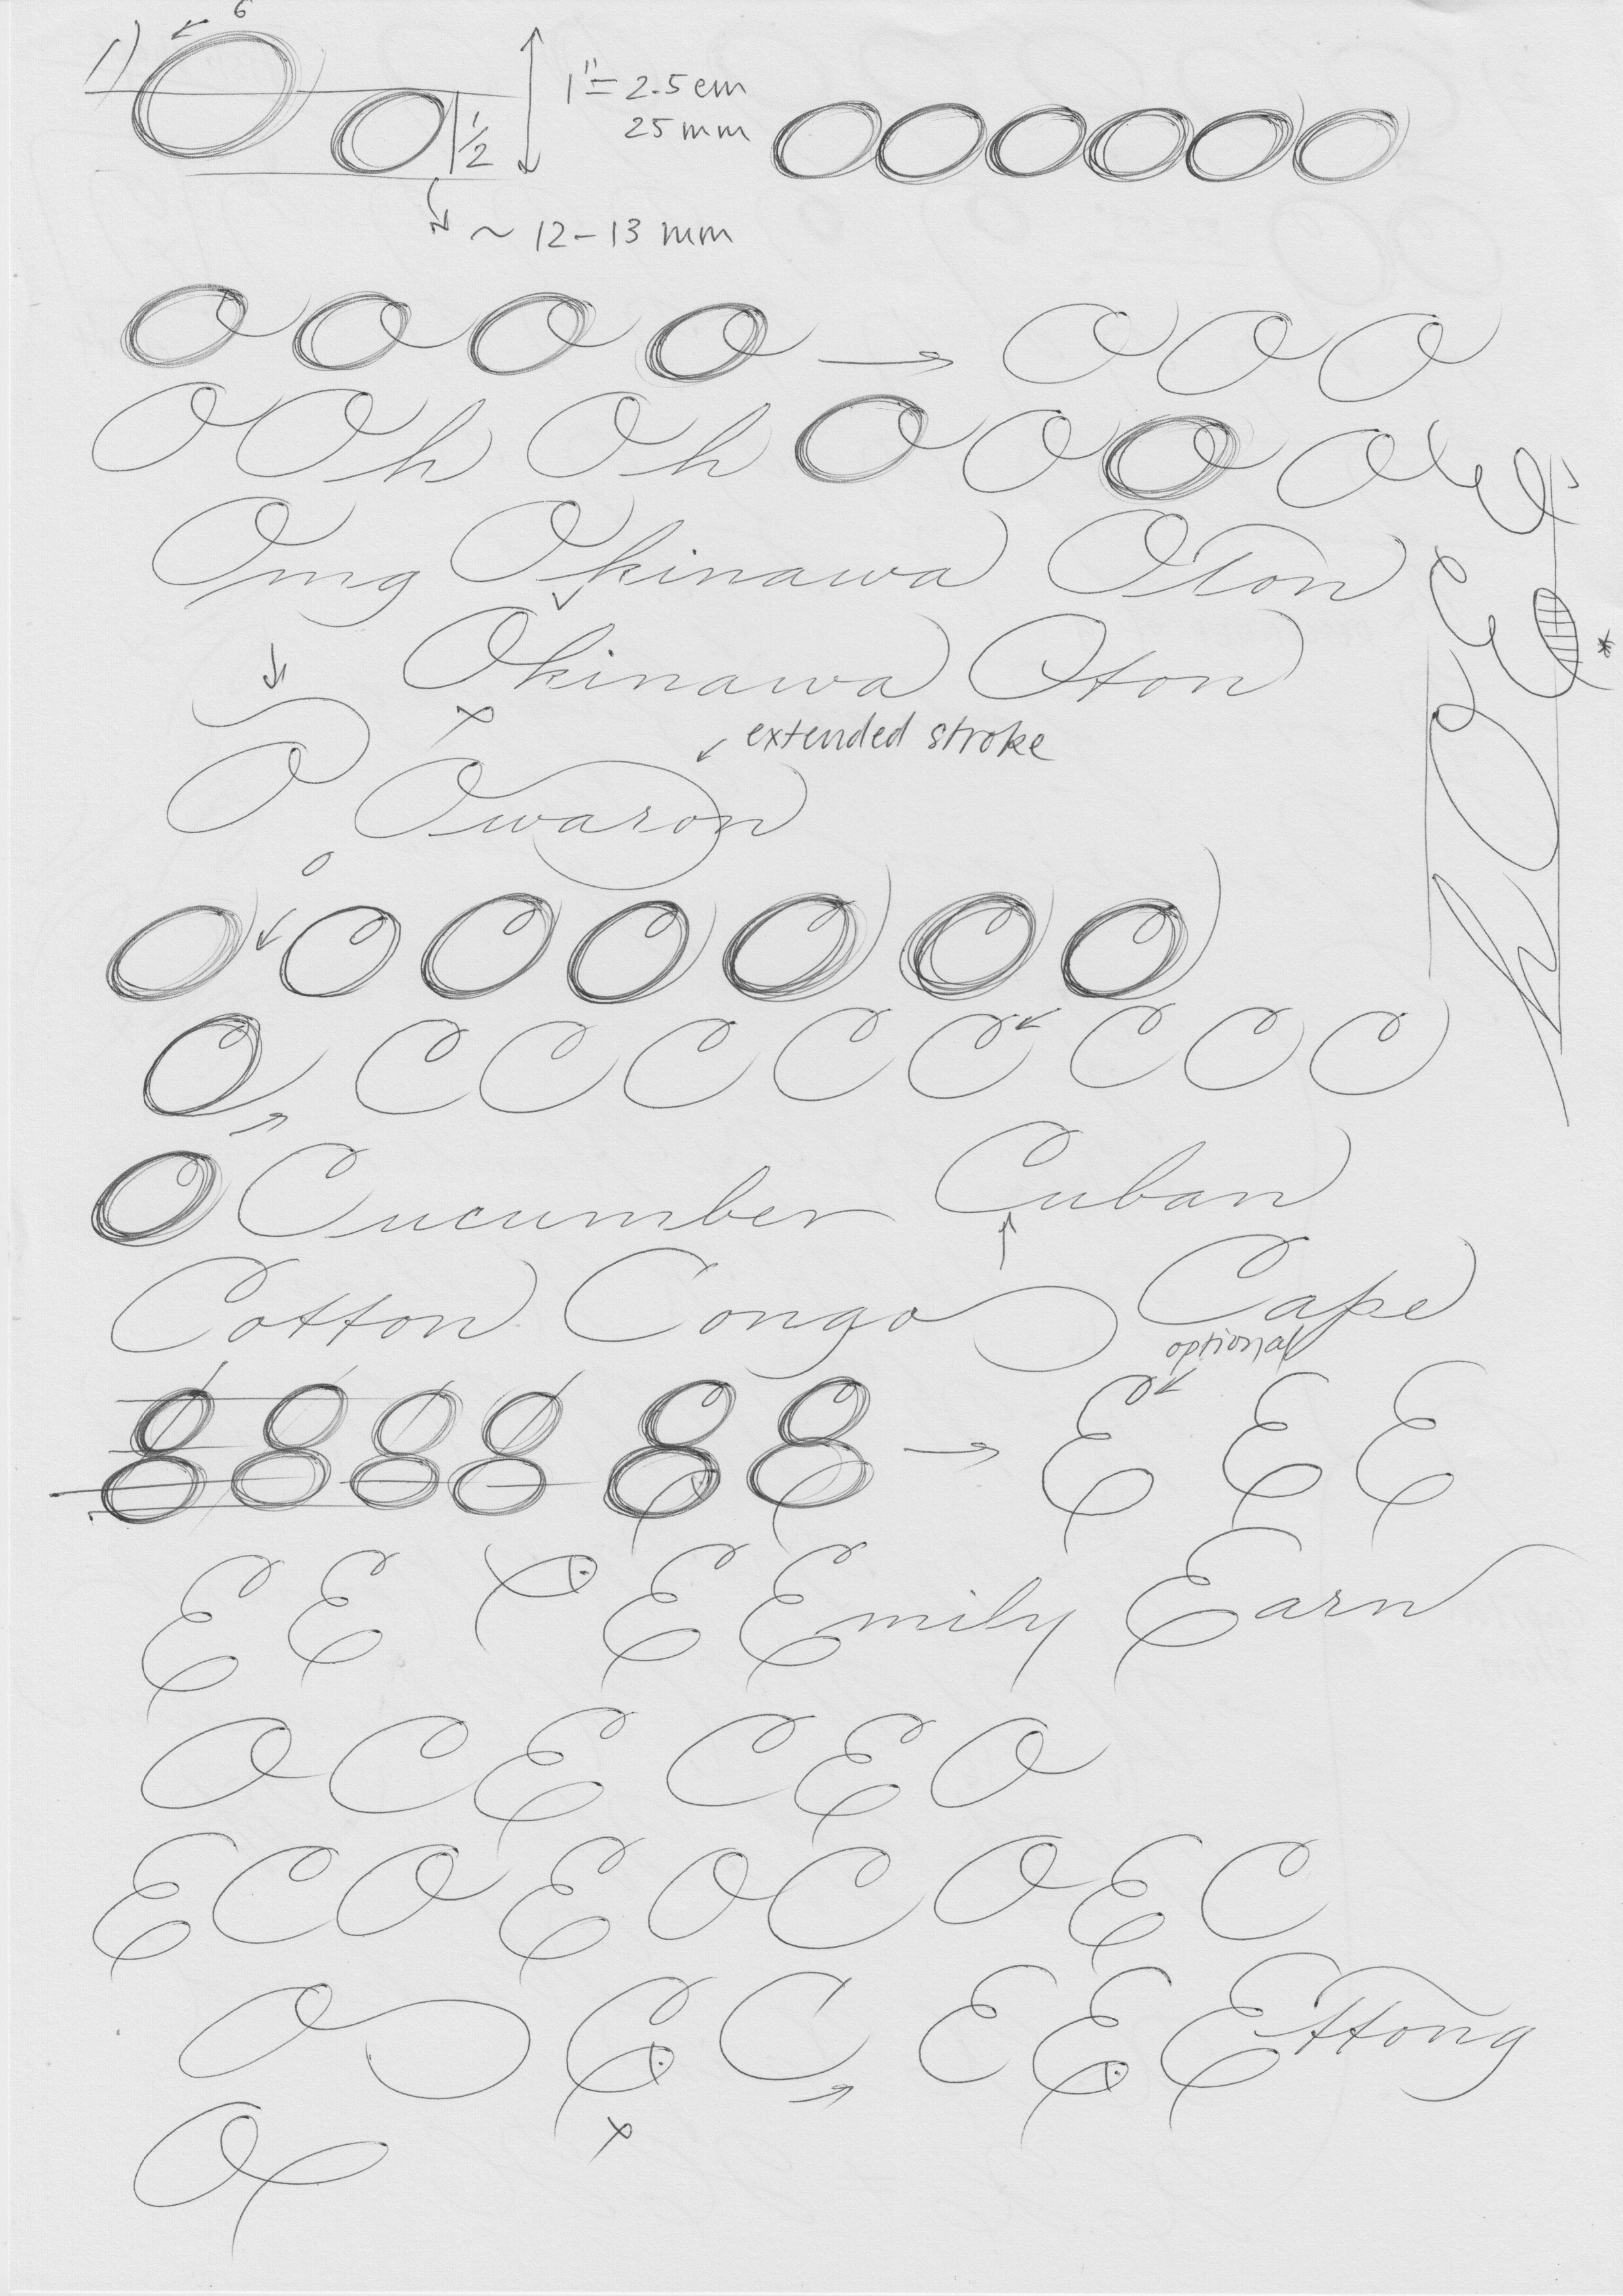 1) 6
1" = 2.5 cm
25 mm
1/2
~ 12-13 mm
O O O O → O O O
O Oh Oh O O O O
Omg Okinawa Oton
Okinawa Oton
extended stroke
O Owaron
O O O O O O O
O C C C C C C C C
O Cucumber Cuban
Cotton Congo Cape
optional
8 8 8 8 8 8 → E E E
E E E Emily Earn
O C E C E O
E C O E O C O E C
O C C E E Ettong
O